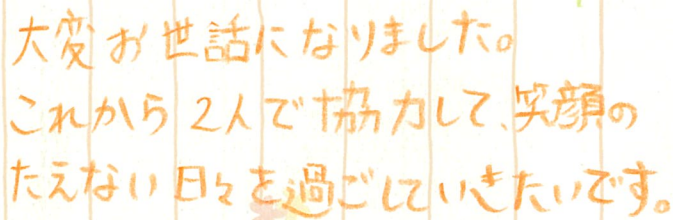 大変お世話になりました。
これから2人で協力して、笑顔の
たえない日々を過ごしていきたいです。